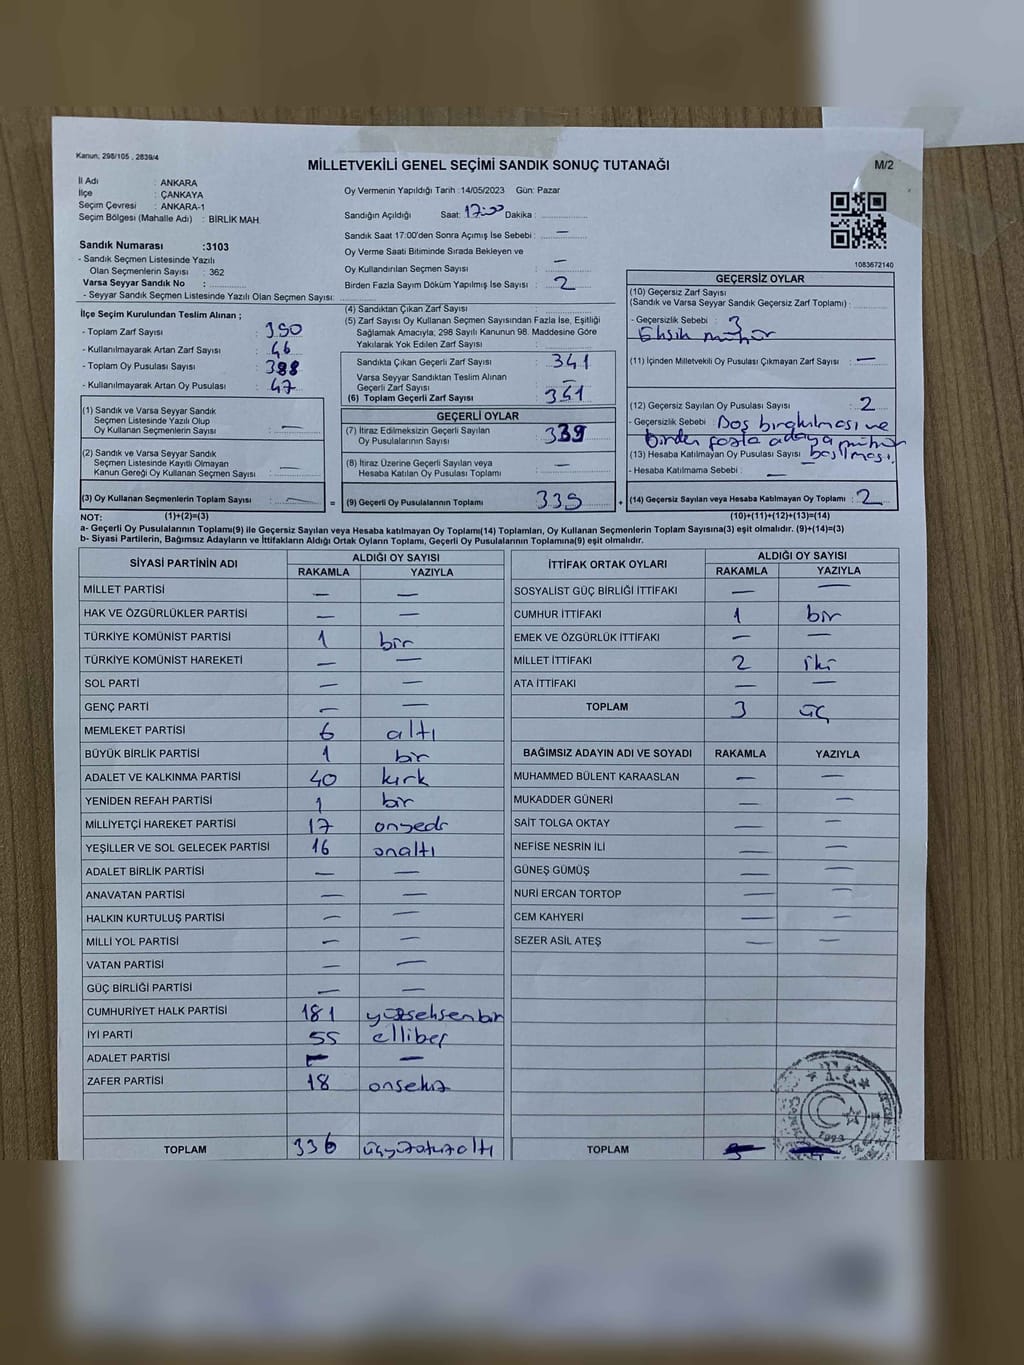 Kanun, 298/105 , 2839/4
MİLLETVEKİLİ GENEL SEÇİMİ SANDIK SONUÇ TUTANAĞI
M/2
İl Adı : ANKARA
İlçe : ÇANKAYA
Seçim Çevresi : ANKARA-1
Seçim Bölgesi (Mahalle Adı) : BİRLİK MAH.
Sandık Numarası :3103
- Sandık Seçmen Listesinde Yazılı
Olan Seçmenlerin Sayısı : 362
Varsa Seyyar Sandık No :
- Seyyar Sandık Seçmen Listesinde Yazılı Olan Seçmen Sayısı:
Oy Vermenin Yapıldığı Tarih :14/05/2023 Gün: Pazar
Sandığın Açıldığı Saat: 17:00 Dakika :
Sandık Saat 17:00'den Sonra Açımış İse Sebebi : —
Oy Verme Saati Bitiminde Sırada Bekleyen ve
Oy Kullandırılan Seçmen Sayısı : —
Birden Fazla Sayım Döküm Yapılmış İse Sayısı : 2
1083672140
İlçe Seçim Kurulundan Teslim Alınan ;
- Toplam Zarf Sayısı : 390
- Kullanılmayarak Artan Zarf Sayısı : 46
- Toplam Oy Pusulası Sayısı : 388
- Kullanılmayarak Artan Oy Pusulası : 47
(1) Sandık ve Varsa Seyyar Sandık
Seçmen Listesinde Yazılı Olup
Oy Kullanan Seçmenlerin Sayısı : —
(2) Sandık ve Varsa Seyyar Sandık
Seçmen Listesinde Kayıtlı Olmayan
Kanun Gereği Oy Kullanan Seçmen Sayısı : —
(3) Oy Kullanan Seçmenlerin Toplam Sayısı : — =
(4) Sandıktan Çıkan Zarf Sayısı :
(5) Zarf Sayısı Oy Kullanan Seçmen Sayısından Fazla İse, Eşitliği
Sağlamak Amacıyla, 298 Sayılı Kanunun 98. Maddesine Göre
Yakılarak Yok Edilen Zarf Sayısı :
Sandıkta Çıkan Geçerli Zarf Sayısı : 341
Varsa Seyyar Sandıktan Teslim Alınan
Geçerli Zarf Sayısı : —
(6) Toplam Geçerli Zarf Sayısı : 341
GEÇERLİ OYLAR
(7) İtiraz Edilmeksizin Geçerli Sayılan
Oy Pusulalarının Sayısı : 339
(8) İtiraz Üzerine Geçerli Sayılan veya
Hesaba Katılan Oy Pusulası Toplamı : —
(9) Geçerli Oy Pusulalarının Toplamı : 339 +
GEÇERSİZ OYLAR
(10) Geçersiz Zarf Sayısı
(Sandık ve Varsa Seyyar Sandık Geçersiz Zarf Toplamı) :
- Geçersizlik Sebebi : 3
Eksik mühür
(11) İçinden Milletvekili Oy Pusulası Çıkmayan Zarf Sayısı : —
(12) Geçersiz Sayılan Oy Pusulası Sayısı : 2
- Geçersizlik Sebebi : Boş bırakılması ve
birden fazla adaya mühür
(13) Hesaba Katılmayan Oy Pusulası Sayısı : basılması.
- Hesaba Katılmama Sebebi : —
(14) Geçersiz Sayılan veya Hesaba Katılmayan Oy Toplamı : 2
NOT: (1)+(2)=(3) (10)+(11)+(12)+(13)=(14)
a- Geçerli Oy Pusulalarının Toplamı(9) ile Geçersiz Sayılan veya Hesaba katılmayan Oy Toplamı(14) Toplamları, Oy Kullanan Seçmenlerin Toplam Sayısına(3) eşit olmalıdır. (9)+(14)=(3)
b- Siyasi Partilerin, Bağımsız Adayların ve İttifakların Aldığı Ortak Oyların Toplamı, Geçerli Oy Pusulalarının Toplamına(9) eşit olmalıdır.
SİYASİ PARTİNİN ADI ALDIĞI OY SAYISI
RAKAMLA YAZIYLA
MİLLET PARTİSİ — —
HAK VE ÖZGÜRLÜKLER PARTİSİ — —
TÜRKİYE KOMÜNİST PARTİSİ 1 bir
TÜRKİYE KOMÜNİST HAREKETİ — —
SOL PARTİ — —
GENÇ PARTİ — —
MEMLEKET PARTİSİ 6 altı
BÜYÜK BİRLİK PARTİSİ 1 bir
ADALET VE KALKINMA PARTİSİ 40 kırk
YENİDEN REFAH PARTİSİ 1 bir
MİLLİYETÇİ HAREKET PARTİSİ 17 onyedi
YEŞİLLER VE SOL GELECEK PARTİSİ 16 onaltı
ADALET BİRLİK PARTİSİ — —
ANAVATAN PARTİSİ — —
HALKIN KURTULUŞ PARTİSİ — —
MİLLİ YOL PARTİSİ — —
VATAN PARTİSİ — —
GÜÇ BİRLİĞİ PARTİSİ — —
CUMHURİYET HALK PARTİSİ 181 yüzseksenbir
İYİ PARTİ 55 ellibeş
ADALET PARTİSİ — —
ZAFER PARTİSİ 18 onsekiz
TOPLAM 336 üçyüzotuzaltı
İTTİFAK ORTAK OYLARI ALDIĞI OY SAYISI
RAKAMLA YAZIYLA
SOSYALİST GÜÇ BİRLİĞİ İTTİFAKI — —
CUMHUR İTTİFAKI 1 bir
EMEK VE ÖZGÜRLÜK İTTİFAKI — —
MİLLET İTTİFAKI 2 iki
ATA İTTİFAKI — —
TOPLAM 3 üç
BAĞIMSIZ ADAYIN ADI VE SOYADI RAKAMLA YAZIYLA
MUHAMMED BÜLENT KARAASLAN — —
MUKADDER GÜNERİ — —
SAİT TOLGA OKTAY — —
NEFİSE NESRİN İLİ — —
GÜNEŞ GÜMÜŞ — —
NURİ ERCAN TORTOP — —
CEM KAHYERİ — —
SEZER ASİL ATEŞ — —
TOPLAM
T.C.